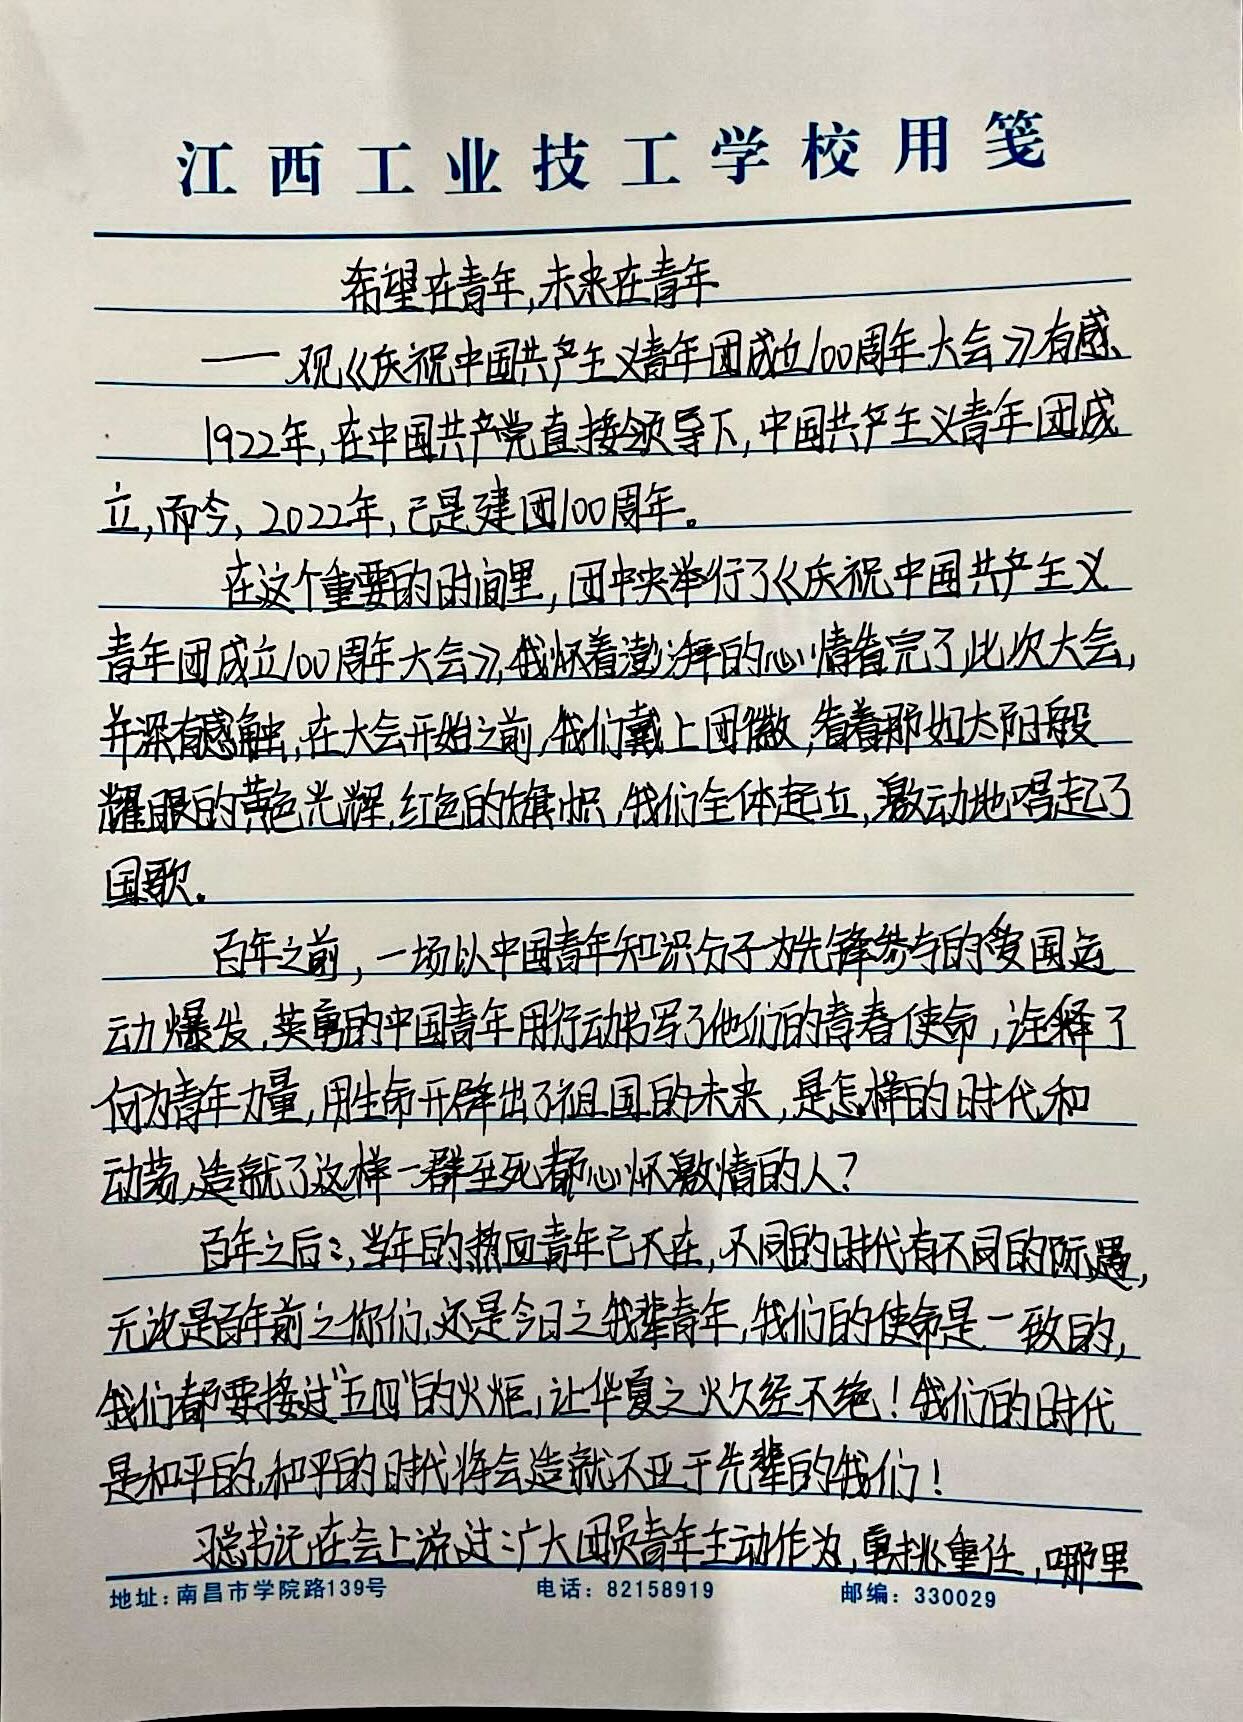 江西工业技工学校用笺
希望在青年,未来在青年
——观《庆祝中国共产主义青年团成立100周年大会》有感
1922年,在中国共产党直接领导下,中国共产主义青年团成
立,而今,2022年,已是建团100周年。
在这个重要的时间里,团中央举行了《庆祝中国共产主义
青年团成立100周年大会》,我怀着澎湃的心情看完了此次大会,
并深有感触,在大会开始之前,我们戴上团徽,看着那如太阳般
耀眼的黄色光辉,红色的旗帜,我们全体起立,激动地唱起了
国歌。
百年之前,一场以中国青年知识分子为先锋参与的爱国运
动爆发,英勇的中国青年用行动书写了他们的青春使命,诠释了
何为青年力量,用生命开辟出了祖国的未来,是怎样的时代和
动荡,造就了这样一群至死都心怀激情的人?
百年之后,当年的热血青年已不在,不同的时代有不同的际遇,
无论是百年前之你们,还是今日之我辈青年,我们的使命是一致的,
我们都要接过"五四"的火炬,让华夏之火久经不绝!我们的时代
是和平的,和平的时代将会造就不亚于先辈的我们!
习总书记在会上说过:广大团员青年主动作为,勇挑重任,哪里
地址:南昌市学院路139号 电话:82158919 邮编:330029